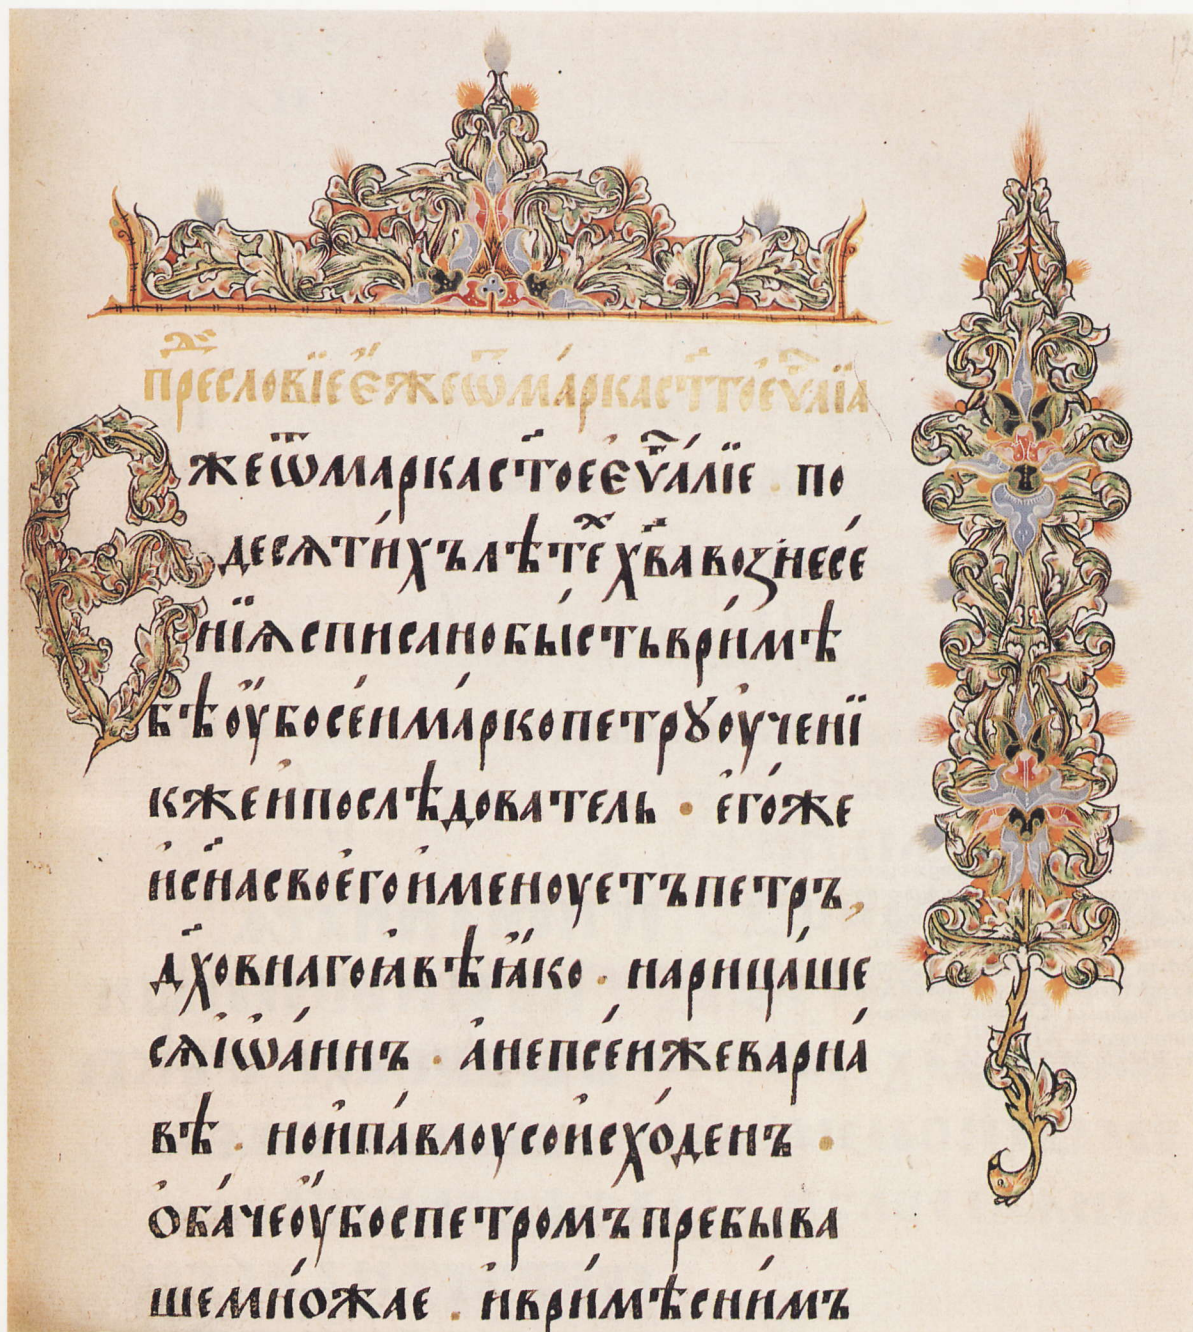 прⷣесло́вїе є҆́же ѿ ма́рка ст҃го є҆ѵⷢ҇лїа
Єже ѿ марка ст҃ое є҆ѵⷢ҇а́лїе · по
десѧти́хъ лѣ́тех хв҃а вознесе́
нїѧ списано бы́сть в ри́мѣ
бѣ оу҆́бо се́и ма́рко петрꙋ оу҆ченї
к же и҆ послѣ́дователь · є҆го́же
и҆ сн҃а своего̀ и҆меноуетъ петръ,
дх҃овнаго ꙗ҆вѣ ꙗ҆́ко · нарица́ше
сѧ і҆ѡ҆а́ннъ · а҆непсе́и же варна́
вѣ · но и҆ па́влоу сои҆схо́денъ ·
ѻ҆ба́че оу҆́бо с петромъ пребыва
ше мно́жае · и҆ в ри́мѣ с ни́мъ